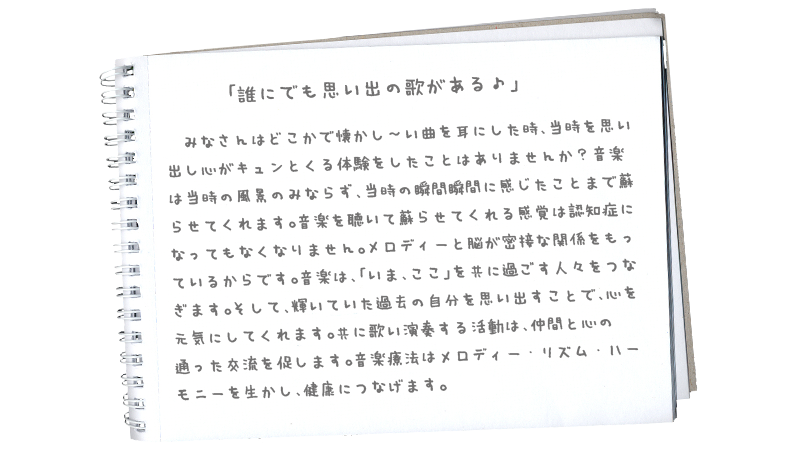 「誰にでも思い出の歌がある♪」
みなさんはどこかで懐かし～い曲を耳にした時、当時を思い
出し心がキュンとくる体験をしたことはありませんか？音楽
は当時の風景のみならず、当時の瞬間瞬間に感じたことまで蘇
らせてくれます。音楽を聴いて蘇らせてくれる感覚は認知症に
なってもなくなりません。メロディーと脳が密接な関係をもっ
ているからです。音楽は、「いま、ここ」を共に過ごす人々をつな
ぎます。そして、輝いていた過去の自分を思い出すことで、心を
元気にしてくれます。共に歌い演奏する活動は、仲間と心の
通った交流を促します。音楽療法はメロディー・リズム・ハー
モニーを生かし、健康につなげます。